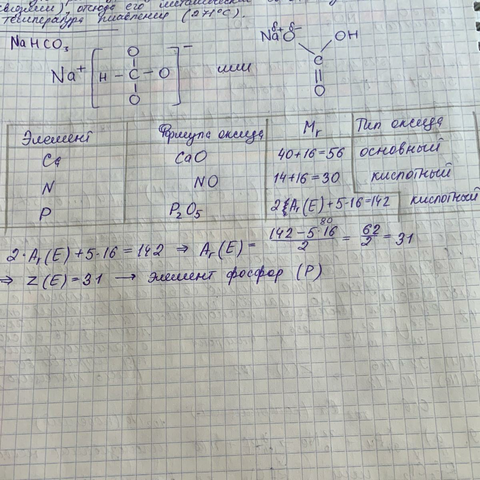 отсюда его металлические
температура плавления (271°C).
NaHCO₃
Na⁺ [H – C – O]⁻ или Naᵟ⁺Oᵟ⁻ OH
O
O
C
O
Элемент Формула оксида Mr Тип оксида
Ca CaO 40+16=56 основный
N NO 14+16=30 кислотный
P P₂O₅ 2·Ar(E)+5·16=142 кислотный
2·Ar(E)+5·16=142 ⇒ Ar(E)= (142-5·16)/2 = 62/2 = 31
80
⇒ Z(E)=31 → Элемент фосфор (P)